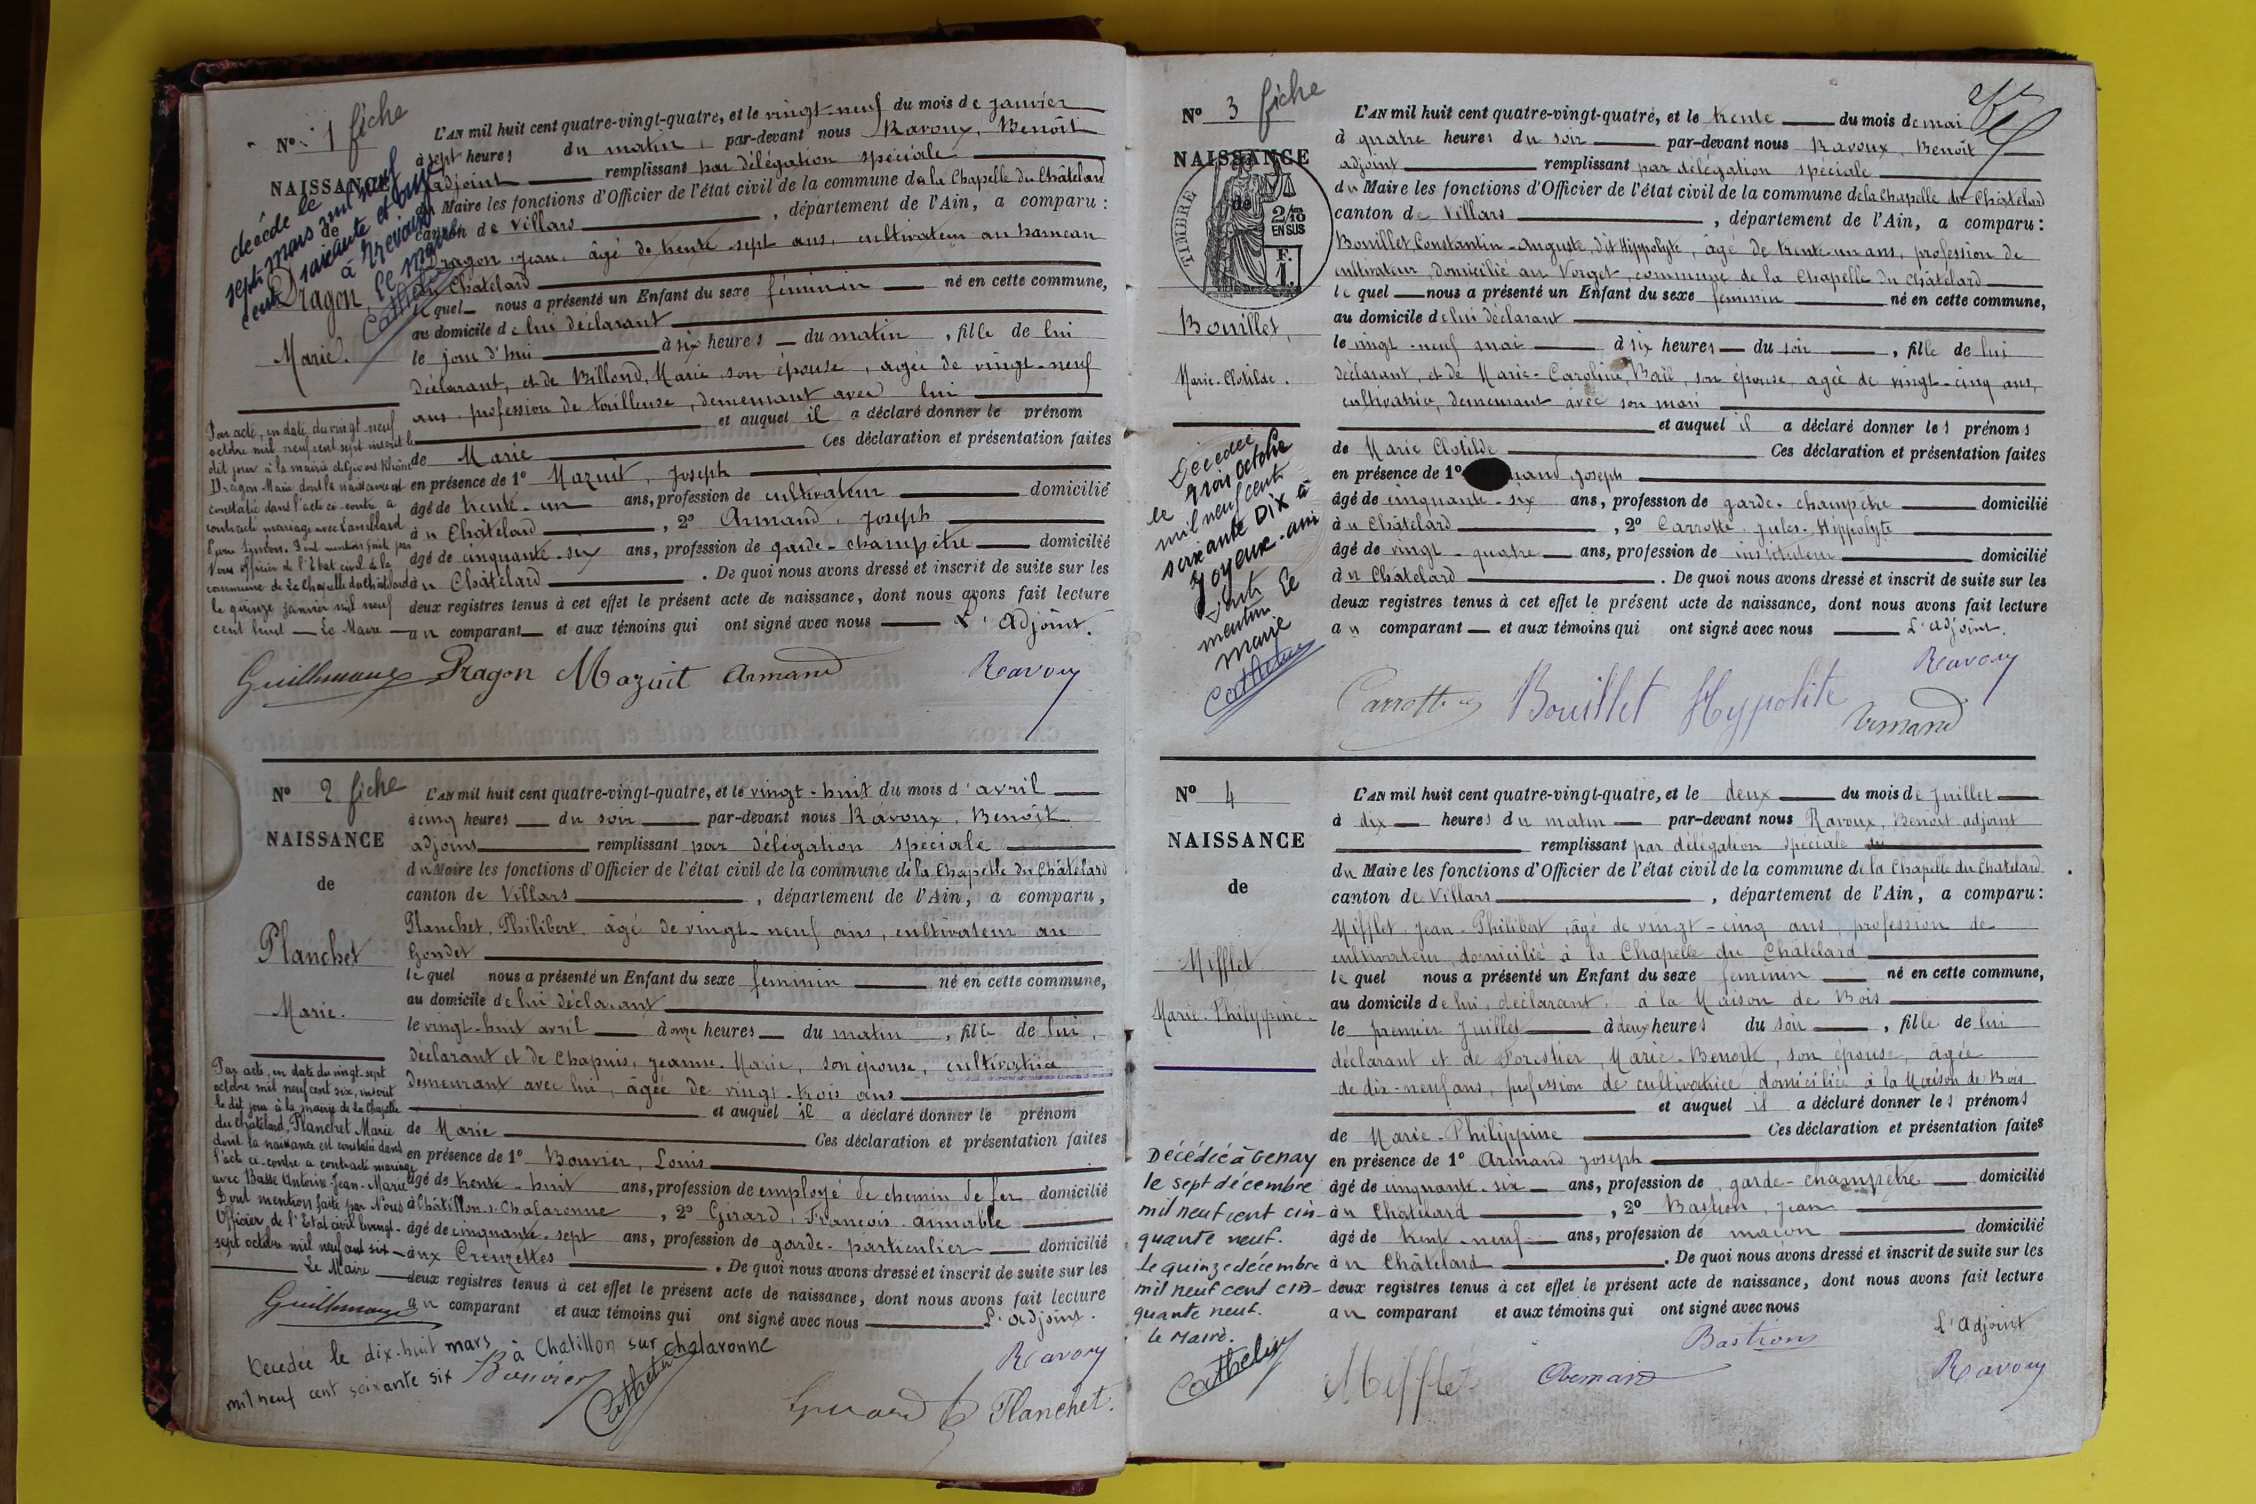 N° 1 fiche
NAISSANCE
de
Dragon,
Marie.
décédé le
sept mars mil neuf
cent soixante et onze
à Trévoux
le maire
Cathelin
L'AN mil huit cent quatre-vingt-quatre, et le vingt-neuf du mois de janvier
à sept heures du matin, par-devant nous Ravoux, Benoît
adjoint remplissant par délégation spéciale
du Maire les fonctions d'Officier de l'état civil de la commune de la Chapelle du Châtelard
canton de Villars, département de l'Ain, a comparu:
Dragon, Jean, âgé de trente-sept ans, cultivateur au hameau
du Châtelard
lequel nous a présenté un Enfant du sexe féminin né en cette commune,
au domicile de lui déclarant
le jour d'hui à six heures du matin, fille de lui
déclarant, et de Billond, Marie son épouse, agée de vingt-neuf
ans, profession de tailleuse, demeurant avec lui
et auquel il a déclaré donner le prénom
de Marie Ces déclaration et présentation faites
en présence de 1° Mazuit, Joseph
âgé de trente-un ans, profession de cultivateur domicilié
à u Châtelard, 2° Armand, Joseph
âgé de cinquante-six ans, profession de garde-champêtre domicilié
à u Châtelard. De quoi nous avons dressé et inscrit de suite sur les
deux registres tenus à cet effet le présent acte de naissance, dont nous avons fait lecture
au comparant et aux témoins qui ont signé avec nous L'adjoint.
Par acte, en date du vingt-neuf
octobre mil neuf cent sept inscrit le
dit jour à la mairie de Givors Rhône
Dragon Marie dont la naissance est
constatée dans l'acte ci-contre a
contracté mariage avec
Dont mention faite par
Nous officier de l'Etat civil de la
commune de La Chapelle du Châtelard
le quinze janvier mil neuf
cent huit Le Maire
Guillermaux Dragon Mazuit Armand Ravoux
N° 2 fiche
NAISSANCE
de
Planchet
Marie.
L'AN mil huit cent quatre-vingt-quatre, et le vingt-huit du mois d'avril
à cinq heures du soir par-devant nous Ravoux, Benoît
adjoint remplissant par délégation spéciale
du Maire les fonctions d'Officier de l'état civil de la commune de la Chapelle du Châtelard
canton de Villars, département de l'Ain, a comparu,
Planchet, Philibert, âgé de vingt-neuf ans, cultivateur au
Gondet
lequel nous a présenté un Enfant du sexe féminin né en cette commune,
au domicile de lui déclarant
le vingt-huit avril à onze heures du matin, fille de lui,
déclarant et de Chapuis, Jeanne-Marie, son épouse, cultivatrice
demeurant avec lui, âgée de vingt-trois ans
et auquel il a déclaré donner le prénom
de Marie Ces déclaration et présentation faites
en présence de 1° Bouvier, Louis
âgé de trente-huit ans, profession de employé de chemin de fer domicilié
à Châtillon-s-Chalaronne, 2° Girard, François-annable
âgé de cinquante-sept ans, profession de garde-particulier domicilié
aux Creuzettes. De quoi nous avons dressé et inscrit de suite sur les
deux registres tenus à cet effet le présent acte de naissance, dont nous avons fait lecture
au comparant et aux témoins qui ont signé avec nous L'adjoint.
Par acte, en date du vingt-sept
octobre mil neuf cent six, inscrit
le dit jour à la mairie de La Chapelle
du Châtelard, Planchet Marie
dont la naissance est constatée dans
l'acte ci-contre a contracté mariage
avec Basse Antoine-Jean-Marie
Dont mention faite par Nous
Officier de l'Etat civil le vingt-
sept octobre mil neuf cent six
Le Maire
Guillermaux
Décédée le dix-huit mars à Chatillon sur chalaronne
mil neuf cent soixante six Bouvier Cathelin
Ravoux
Girard Planchet.
N° 3 fiche
NAISSANCE
de
TIMBRE
2/10 EN SUS
F. 1.
Bouillet,
Marie-Clotilde.
Décédée
le trois octobre
mil neuf cent
soixante DIX à
Joyeux-ain
mention le
mairie
Cathelin
L'AN mil huit cent quatre-vingt-quatre, et le trente du mois de mai
à quatre heures du soir par-devant nous Ravoux, Benoît
adjoint remplissant par délégation spéciale
du Maire les fonctions d'Officier de l'état civil de la commune de la Chapelle du Châtelard
canton de Villars, département de l'Ain, a comparu:
Bouillet, Constantin-Auguste, dit Hippolyte, âgé de trente-un ans, profession de
cultivateur, domicilié au Verget, commune de la Chapelle du Châtelard
lequel nous a présenté un Enfant du sexe féminin né en cette commune,
au domicile de lui déclarant
le vingt-neuf mai à six heures du soir, fille de lui
déclarant, et de Marie-Caroline, son épouse, agée de vingt-cinq ans,
cultivatrice, demeurant avec son mari
et auquel il a déclaré donner les prénoms
de Marie Clotilde Ces déclaration et présentation faites
en présence de 1° mand Joseph
âgé de cinquante-six ans, profession de garde-champêtre domicilié
à u Châtelard, 2° Carrotte, Jules-Hippolyte
âgé de vingt-quatre ans, profession de instituteur domicilié
à u Châtelard. De quoi nous avons dressé et inscrit de suite sur les
deux registres tenus à cet effet le présent acte de naissance, dont nous avons fait lecture
au comparant et aux témoins qui ont signé avec nous L'adjoint.
Ravoux
Carrotte Bouillet Hypolite Armand
N° 4
NAISSANCE
de
Mifflet
Marie-Philippine.
L'AN mil huit cent quatre-vingt-quatre, et le deux du mois de Juillet
à dix heures du matin par-devant nous Ravoux, Benoît adjoint
remplissant par délégation spéciale
du Maire les fonctions d'Officier de l'état civil de la commune de la Chapelle du Châtelard
canton de Villars, département de l'Ain, a comparu:
Mifflet, Jean-Philibert, âgé de vingt-cinq ans, profession de
cultivateur, domicilié à la Chapelle du Châtelard
lequel nous a présenté un Enfant du sexe féminin né en cette commune,
au domicile de lui, déclarant, à la Maison de Bois
le premier Juillet à deux heures du soir, fille de lui
déclarant et de Forestier, Marie-Benoîte, son épouse, âgée
de dix-neuf ans, profession de cultivatrice domiciliée à la Maison de Bois
et auquel il a déclaré donner les prénoms
de Marie-Philippine Ces déclaration et présentation faites
en présence de 1° Armand Joseph
âgé de cinquante-six ans, profession de garde-champêtre domicilié
à u Châtelard, 2° Bastion, Jean
âgé de trente-neuf ans, profession de maçon domicilié
à u Châtelard. De quoi nous avons dressé et inscrit de suite sur les
deux registres tenus à cet effet le présent acte de naissance, dont nous avons fait lecture
au comparant et aux témoins qui ont signé avec nous
Décédée à Genay
le sept décembre
mil neuf cent cin-
quante neuf.
Le quinze décembre
mil neuf cent cin-
quante neuf.
Le Maire.
Cathelin
L'adjoint
Mifflet Armand Bastion Ravoux